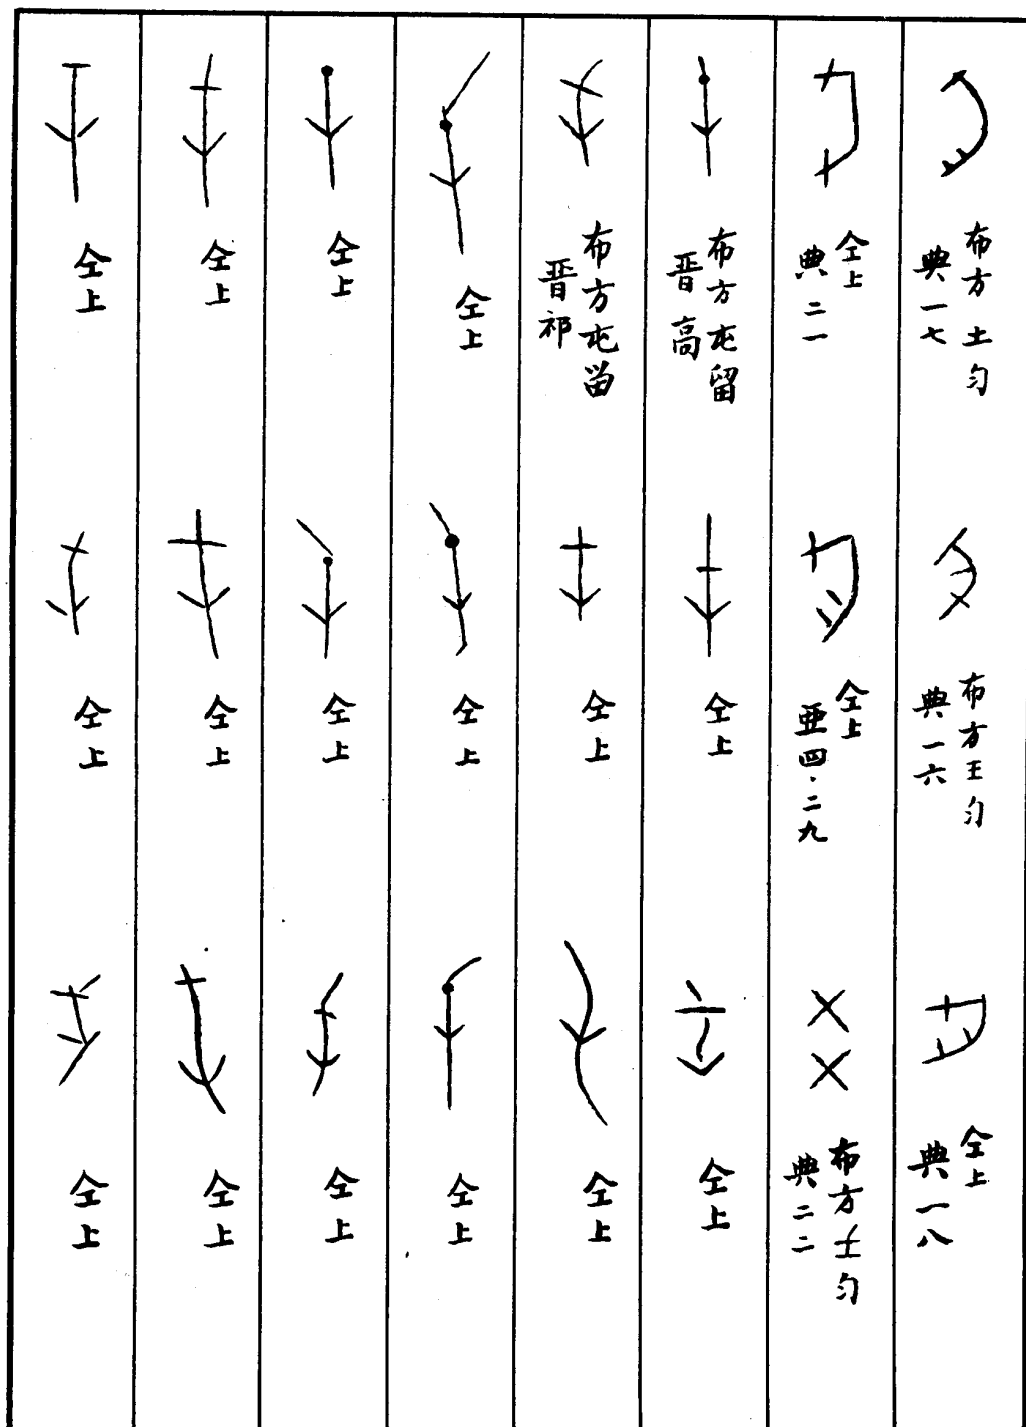 布方土匀
典一七
布方王匀
典一六
仝上
典一八
仝上
典二一
仝上
亞四·二九
布方壬匀
典二二
布方屯留
晋高
仝上
仝上
布方屯畄
晋祁
仝上
仝上
仝上
仝上
仝上
仝上
仝上
仝上
仝上
仝上
仝上
仝上
仝上
仝上